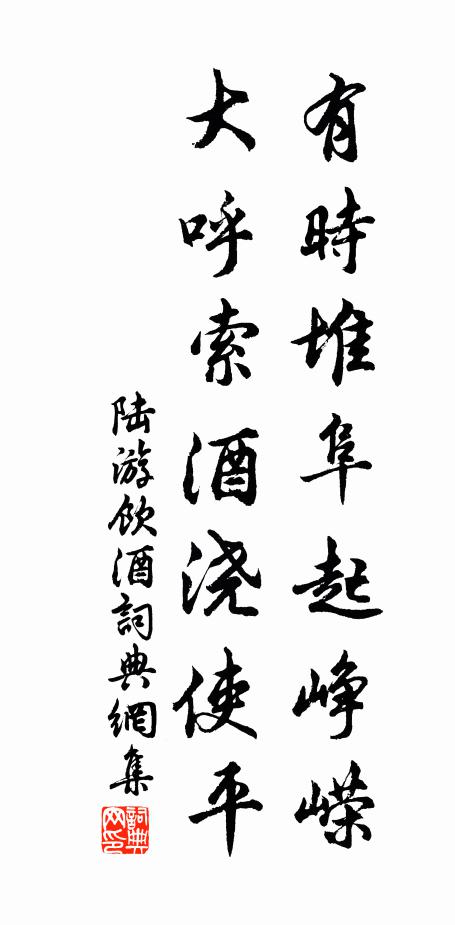 有時堆阜起峥嵘
大呼索酒浇使平
陆游飲酒詞典網集
詞典网印